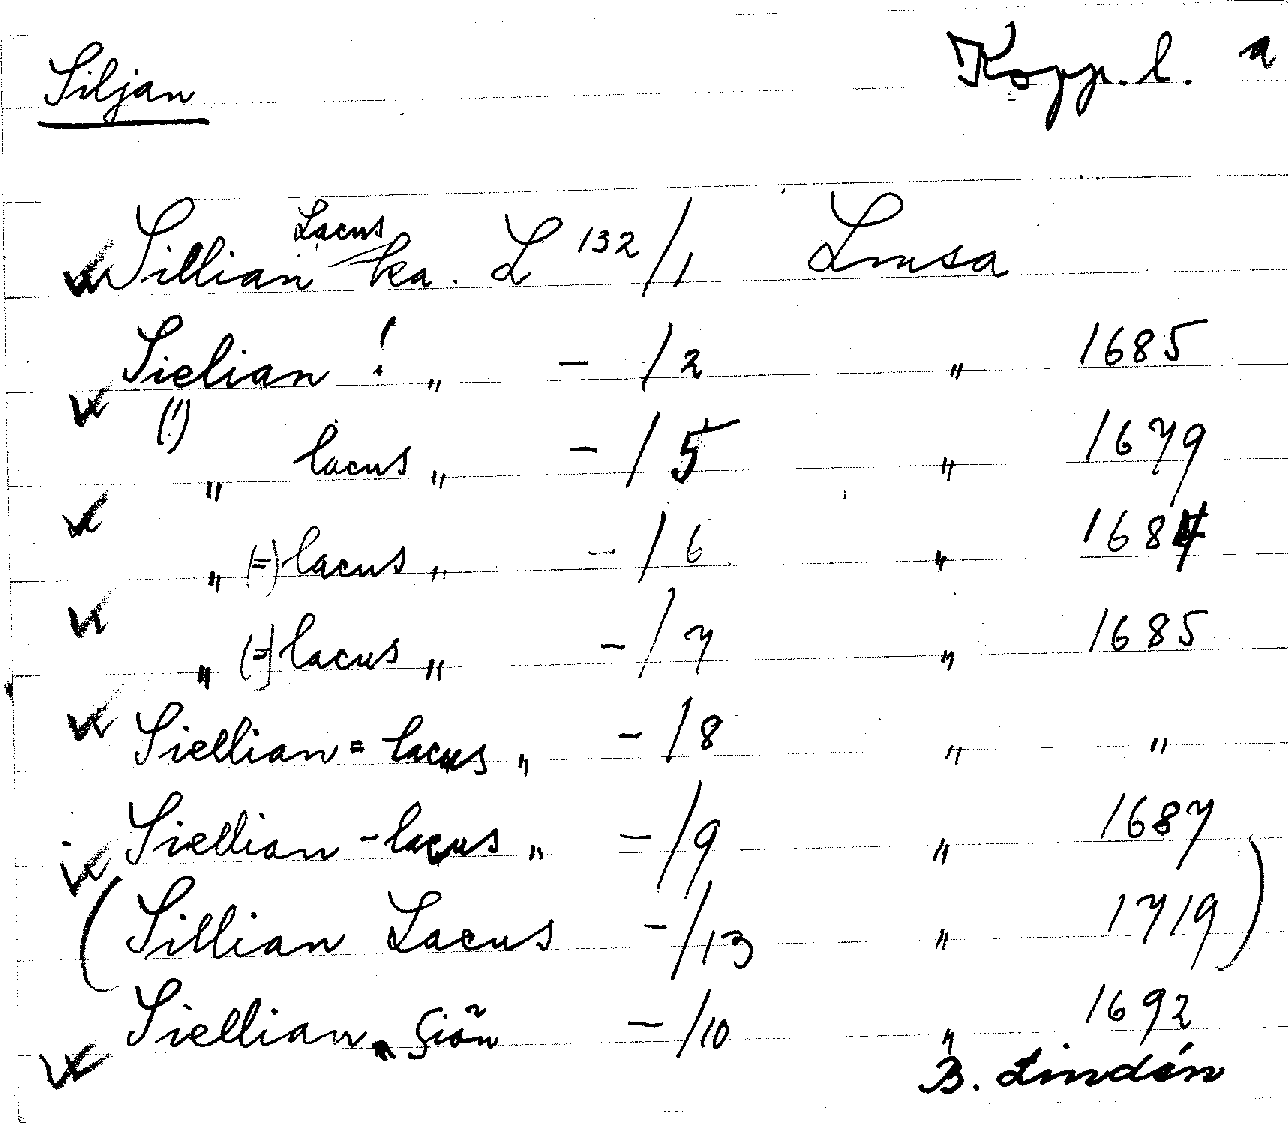 Siljan Kopp. l. a
Sillian Lacus ka. L 132/1 Lmsa
Sielian ! „ - /2 „ 1685
(!)
„ lacus „ - /5 „ 1679
„ (=) lacus „ - /6 „ 1684
„ (=) lacus „ - /7 „ 1685
Siellian = lacus „ - /8 „ „
Siellian - lacus „ - /9 „ 1687
(Sillian Lacus - /13 „ 1719)
Siellian „ Siön - /10 „ 1692
B. Lindén